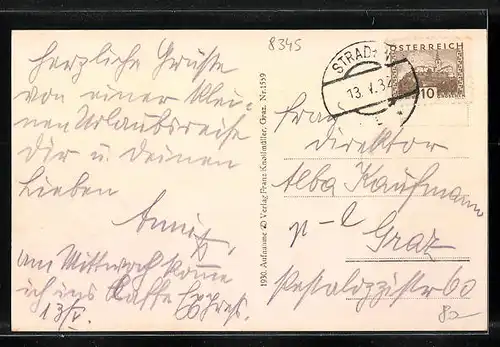 8345
Herzliche Grüße
von einer klei-
nen Urlaubsreise
Dir u. Deinen
Lieben
am Mittwoch komme
ich ins Kaffee
13/V.
1930. Aufnahme u. Verlag Franz Knollmüller, Graz. Nr. 1559
STRAD
13. V. 32
ÖSTERREICH
10 GROSCHEN
Frau
Direktor
Alba Kaufmann
Graz
Pestalozzistr 60
80